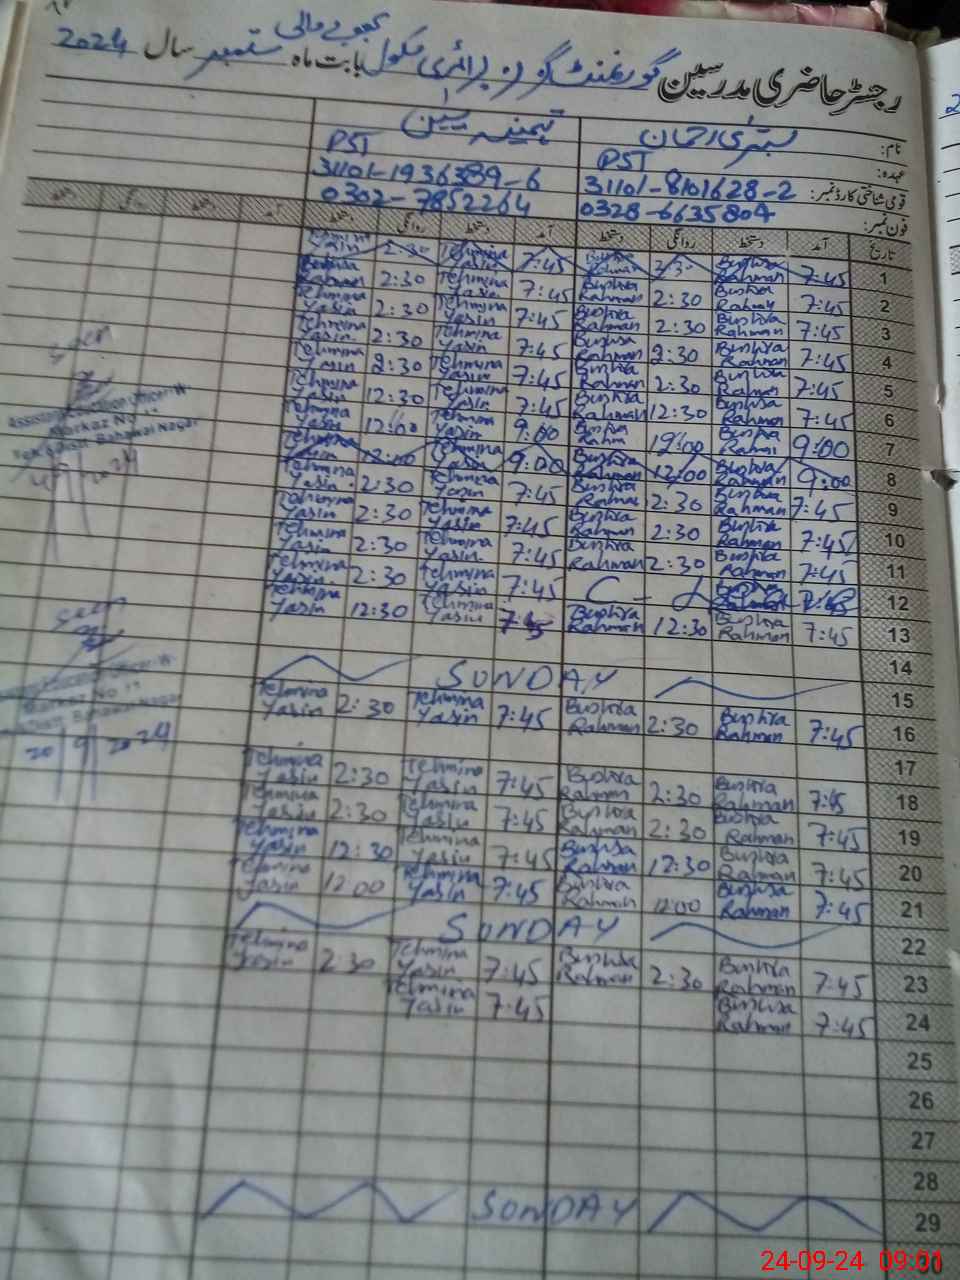 رجسٹر حاضری مدرسین گورنمنٹ گرلز پرائمری سکول بابت ماہ ستمبر سال 2024
نام: بشریٰ رحمان تہمینہ یٰسین
عہدہ: PST PST
قومی شناختی کارڈ نمبر: 31101-8101628-2 31101-1936389-6
فون نمبر: 0328-6635804 0302-7852264
تاریخ آمد دستخط روانگی دستخط آمد دستخط روانگی دستخط آمد دستخط روانگی دستخط
1 7:45 Bushra Rahman 2:30 Bushra Rahman 7:45 Tehmina Yasin 2:30 Tehmina Yasin
2 7:45 Bushra Rahman 2:30 Bushra Rahman 7:45 Tehmina Yasin 2:30
3 7:45 Bushra Rahman 2:30 Bushra Rahman 7:45 Tehmina Yasin 2:30 Tehmina Yasin
4 7:45 Bushra Rahman 2:30 Bushra Rahman 7:45 Tehmina Yasin 2:30 Tehmina Yasin
5 7:45 Bushra Rahman 2:30 Bushra Rahman 7:45 Tehmina Yasin 2:30 Tehmina Yasin
6 7:45 Bushra Rahman 12:30 Bushra Rahman 7:45 Tehmina Yasin 12:30 Tehmina Yasin
7 9:00 Bushra 12:00 Bushra 9:00 Tehmina Yasin 12:00 Tehmina Yasin
8 9:00 Bushra Rahman 12:00 Bushra Rahman 9:00 Tehmina Yasin 12:00 Tehmina Yasin
9 7:45 Bushra Rahman 2:30 Bushra Rahman 7:45 Tehmina Yasin 2:30 Tehmina Yasin
10 7:45 Bushra Rahman 2:30 Bushra Rahman 7:45 Tehmina Yasin 2:30 Tehmina Yasin
11 7:45 Bushra Rahman 2:30 Bushra Rahman 7:45 Tehmina Yasin 2:30 Tehmina Yasin
12 7:45 Tehmina Yasin 2:30 Tehmina Yasin
13 7:45 Bushra Rahman 12:30 Bushra Rahman 7:45 Tehmina Yasin 12:30 Tehmina Yasin
14
15 SUNDAY
16 7:45 Bushra Rahman 2:30 Bushra Rahman 7:45 Tehmina Yasin 2:30 Tehmina Yasin
17
18 7:45 Bushra Rahman 2:30 Bushra Rahman 7:45 Tehmina Yasin 2:30 Tehmina Yasin
19 7:45 Bushra Rahman 2:30 Bushra Rahman 7:45 Tehmina Yasin 2:30 Tehmina Yasin
20 7:45 Bushra Rahman 12:30 Bushra Rahman 7:45 Tehmina Yasin 12:30 Tehmina Yasin
21 7:45 Bushra Rahman 12:00 Bushra Rahman 7:45 Tehmina Yasin 12:00 Tehmina Yasin
22 SUNDAY
23 7:45 Bushra Rahman 2:30 Bushra Rahman 7:45 Tehmina Yasin 2:30 Tehmina Yasin
24 7:45 Bushra Rahman 7:45 Tehmina Yasin
25
26
27
28
29 SUNDAY
30
Seen
Markaz No 11
Bahawal Nagar
Seen
Markaz No 11
Bahawal Nagar
20 9 2024
24-09-24 09:01